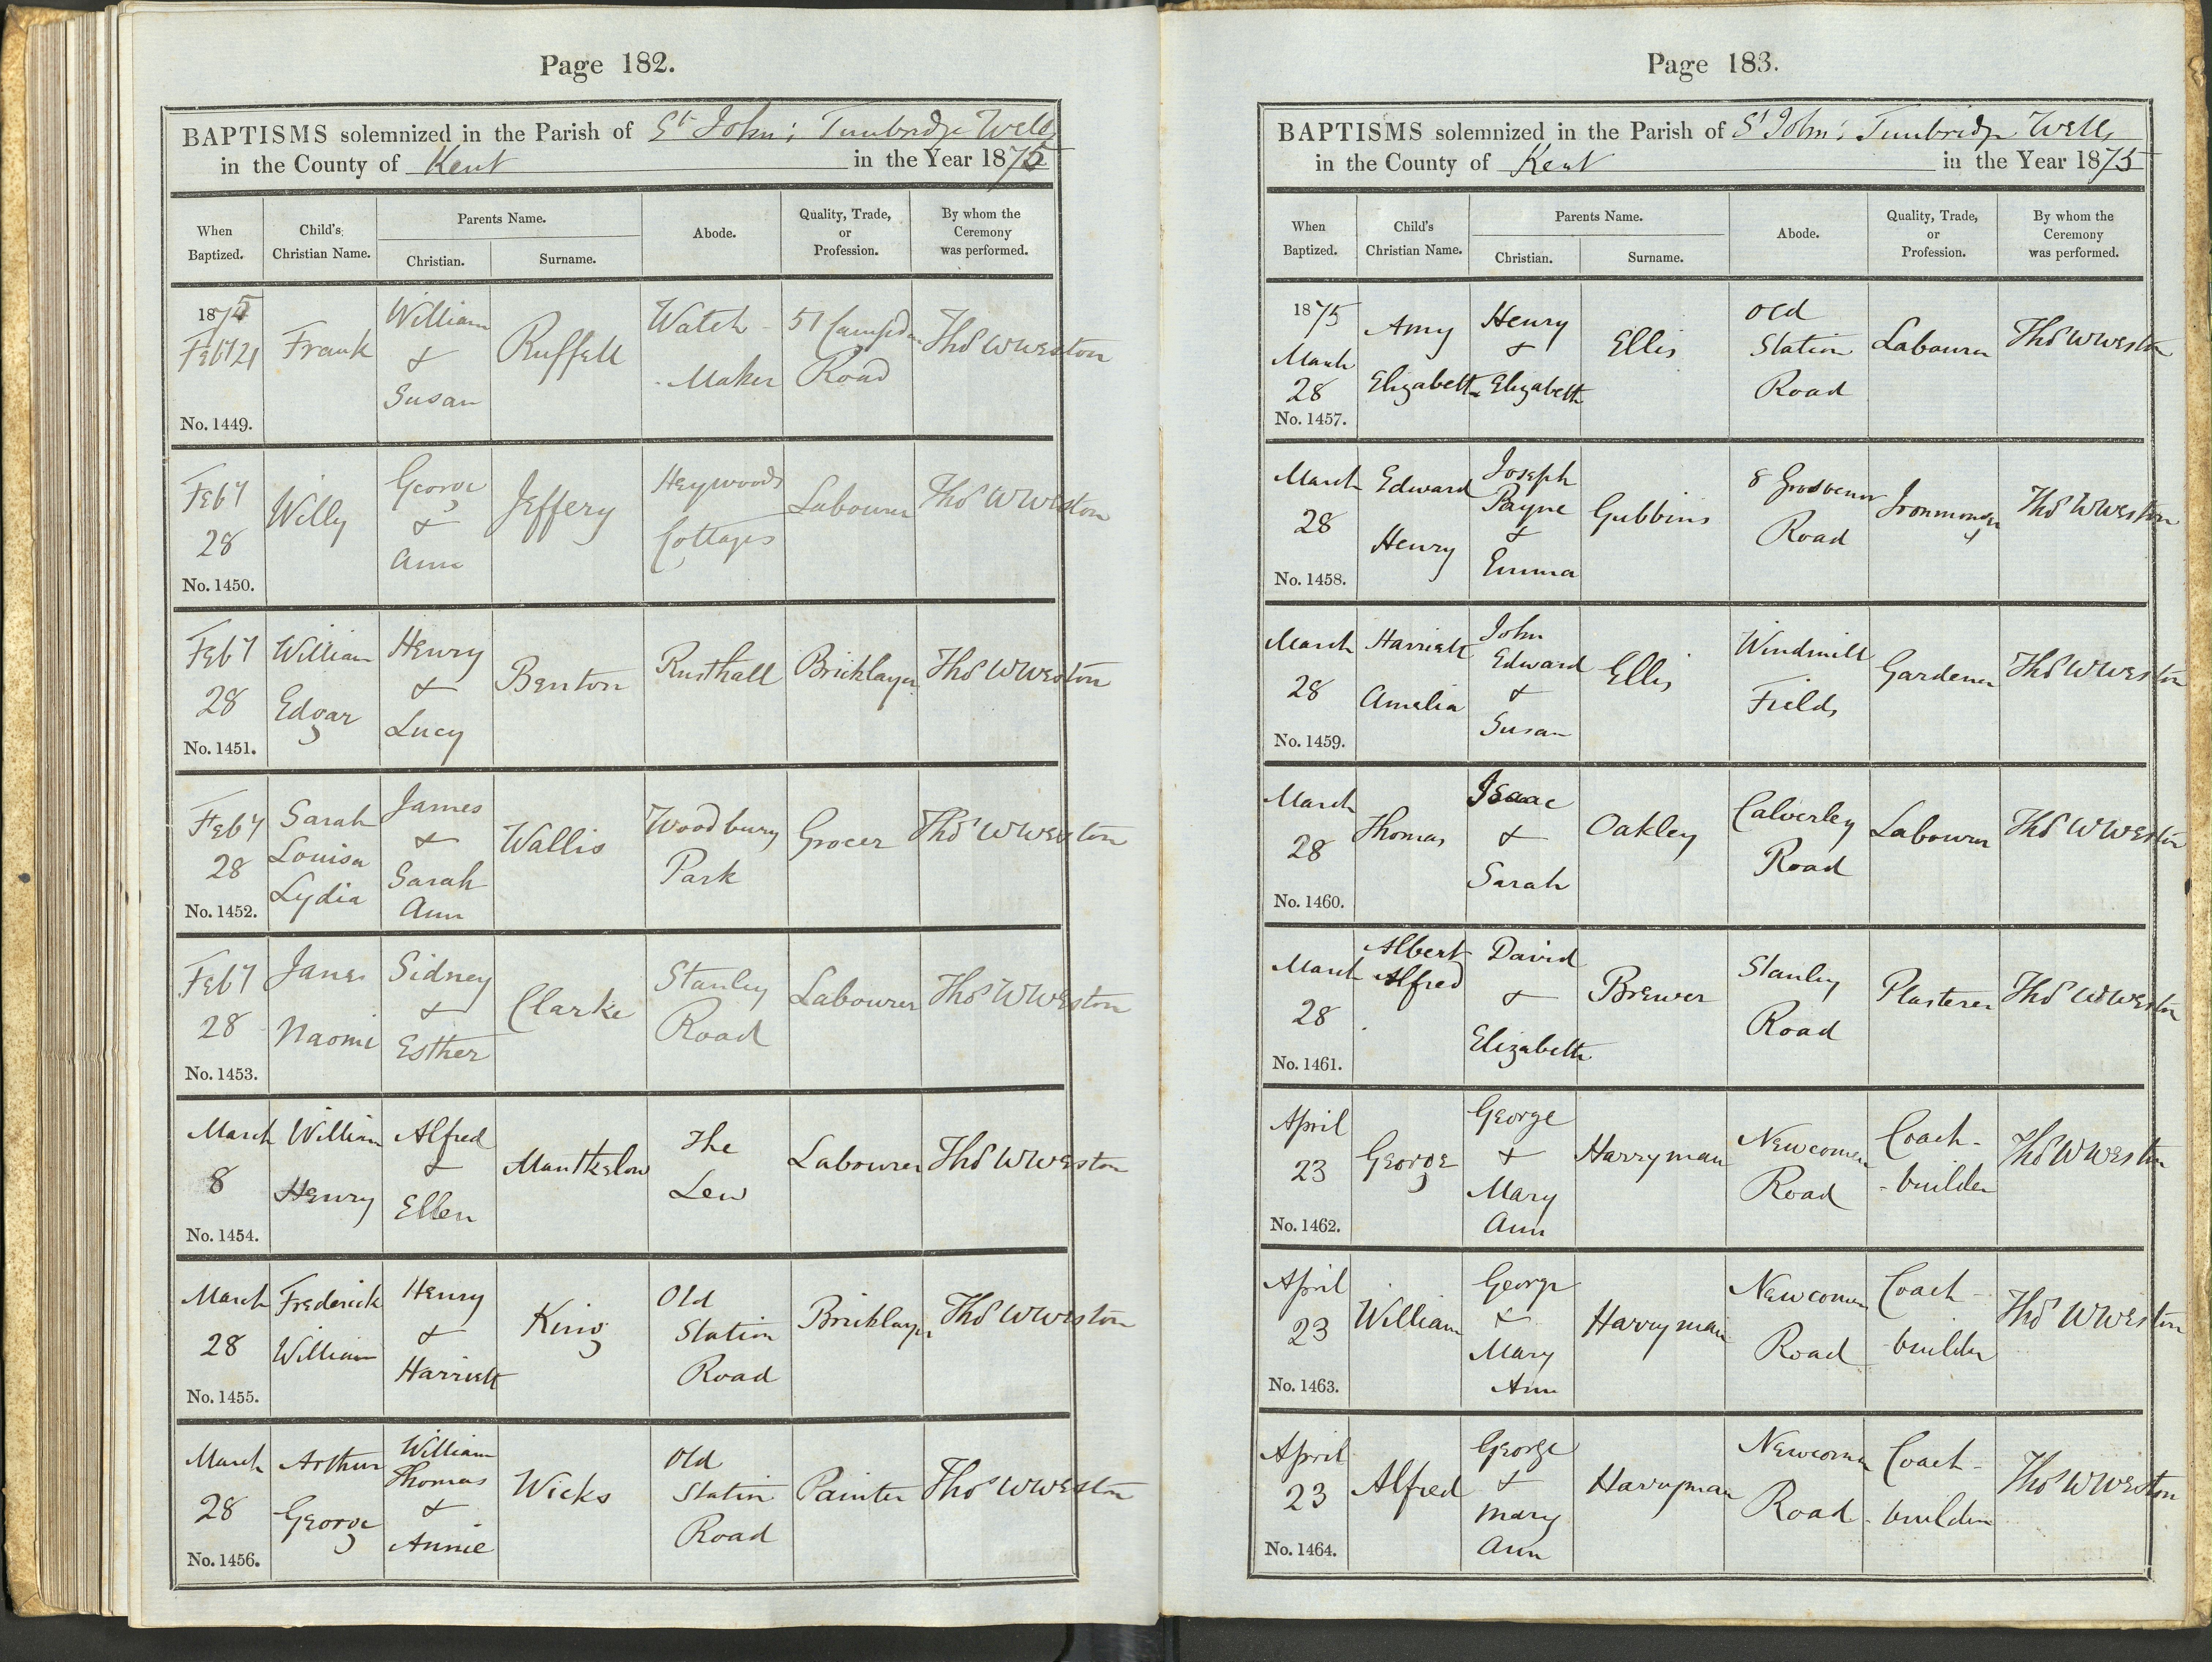 Page 182.
BAPTISMS solemnized in the Parish of St John's Tunbridge Wells
in the County of Kent in the Year 1875
When Baptized. Child's Christian Name. Parents Name. Christian. Surname. Abode. Quality, Trade, or Profession. By whom the Ceremony was performed.
1875 Feby 21 Frank William & Susan Ruffell Watch-Maker 51 Campden Road Thos W Weston
No. 1449.
Feby 28 Willy George & Ann Jeffery Heywoods Cottages Labourer Thos W Weston
No. 1450.
Feby 28 William Edgar Henry & Lucy Benton Rusthall Bricklayer Thos W Weston
No. 1451.
Feby 28 Sarah Louisa Lydia James & Sarah Ann Wallis Woodbury Park Grocer Thos W Weston
No. 1452.
Feby 28 Jane Naomi Sidney & Esther Clarke Stanley Road Labourer Thos W Weston
No. 1453.
March 8 William Henry Alfred & Ellen The Lew Labourer Thos W Weston
No. 1454.
March 28 Frederick William Henry & Harriett King Old Station Road Bricklayer Thos W Weston
No. 1455.
March 28 Arthur George William Thomas & Annie Wicks Old Station Road Painter Thos W Weston
No. 1456.
Page 183.
BAPTISMS solemnized in the Parish of St John's Tunbridge Wells
in the County of Kent in the Year 1875
When Baptized. Child's Christian Name. Parents Name. Christian. Surname. Abode. Quality, Trade, or Profession. By whom the Ceremony was performed.
1875 March 28 Amy Elizabeth Henry & Elizabeth Ellis Old Station Road Labourer Thos W Weston
No. 1457.
March 28 Edward Henry Joseph Payne & Emma Gubbins 8 Grosvenor Road Ironmonger Thos W Weston
No. 1458.
March 28 Harriett Amelia John Edward & Susan Ellis Windmill Fields Gardener Thos W Weston
No. 1459.
March 28 Thomas Isaac & Sarah Oakley Calverley Road Labourer Thos W Weston
No. 1460.
March 28 Albert Alfred David & Elizabeth Brewer Stanley Road Plasterer Thos W Weston
No. 1461.
April 23 George George & Mary Ann Harryman Newcomen Road Coach-builder Thos W Weston
No. 1462.
April 23 William George & Mary Ann Harryman Newcomen Road Coach-builder Thos W Weston
No. 1463.
April 23 Alfred George & Mary Ann Harryman Newcomen Road Coach-builder Thos W Weston
No. 1464.